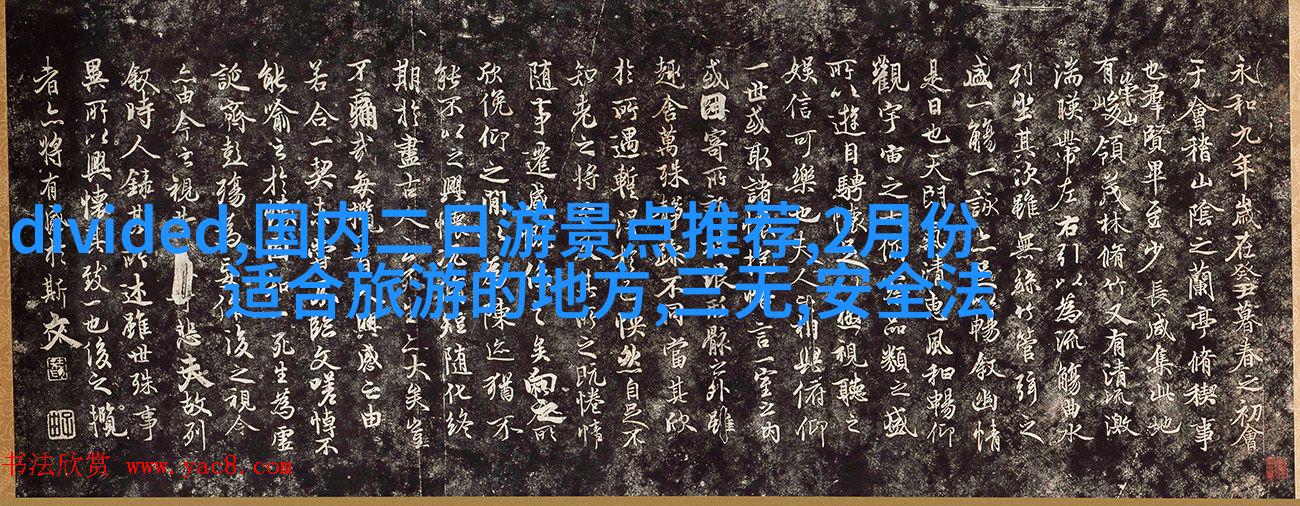 永和九年歲在癸丑暮春之初會
于會稽山陰之蘭亭脩稧事
也羣賢畢至少長咸集此地
有崇山峻領茂林脩竹又有清流激
湍暎帶左右引以為流觴曲水
列坐其次雖無絲竹管弦之
盛一觴一詠暢敘幽情
是日也天朗惠風和暢仰
觀宇宙之大品類之盛
所以遊目騁懷極視聽之
娛信可樂也夫人相與俯仰
一世或取諸言一室之內
或因寄所形骸之外雖
趣舍萬殊靜躁不同當其欣
於所遇暫怏然自足不
知老之將所之既惓情
隨事遷感矣向之所
欣俛仰之閒為陳迹猶不
能不以之興懷隨化終
期於盡古人大矣豈
不痛哉每攬興感之由
若合一契臨文嗟悼不
能喻之於一死生為虛
誕齊彭殤為後之視今
亦由今之視悲夫故列
敘時人錄其所述雖世殊事
異所以興懷其致一也後之攬
者亦將有感於斯文
divided,国内二日游景点推荐,2月份
适合旅游的地方,三无,安全法
书法欣赏 www.yac8.com